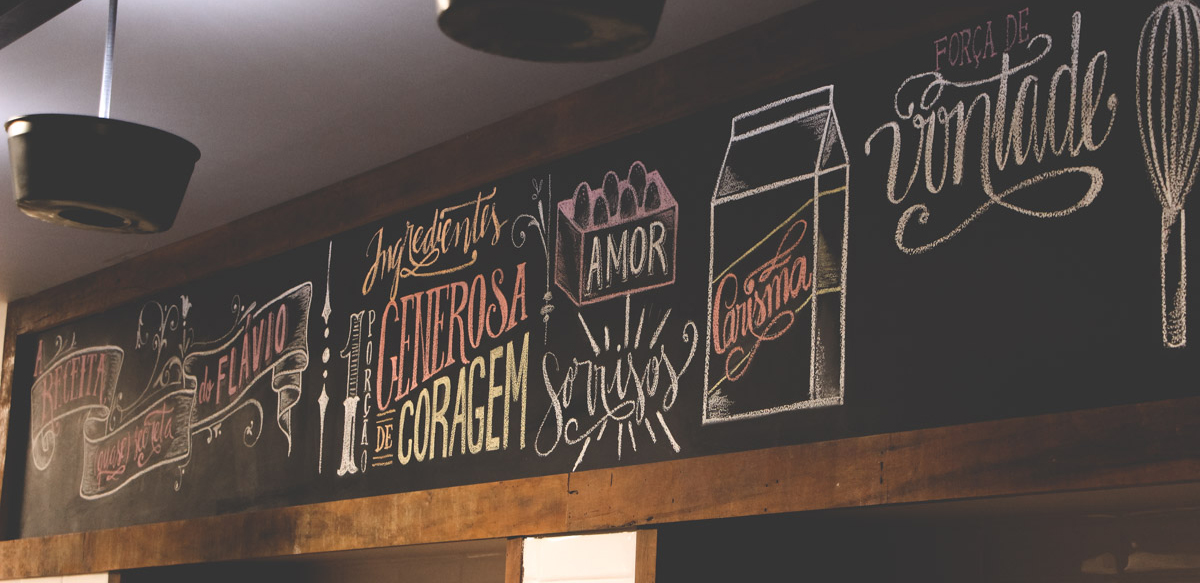 A
RECEITA
quase secreta
do FLÁVIO
Ingredientes
1 PORÇÃO
GENEROSA
DE CORAGEM
AMOR
Sorrisos
Carisma
FORÇA DE
vontade